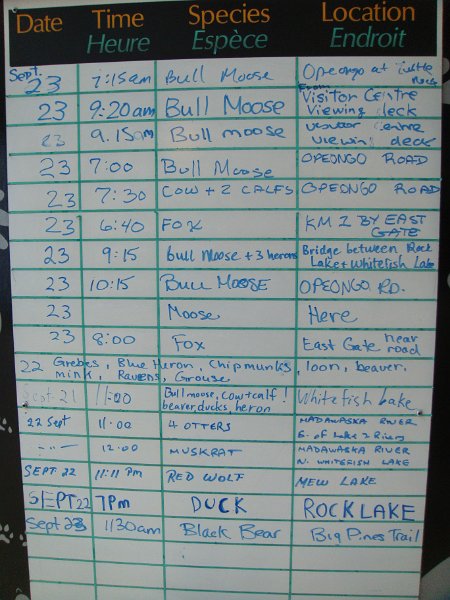 Date Time Species Location
Heure Espèce Endroit
Sept. 23 7:15am Bull Moose Opeongo at Turtle Rock
23 9:20am Bull Moose From Visitor Centre Viewing deck
23 9.15am Bull moose visitor centre viewing deck
23 7:00 Bull Moose OPEONGO ROAD
23 7:30 COW + 2 CALFS OPEONGO ROAD
23 6:40 FOX KM 2 BY EAST GATE
23 9:15 bull moose + 3 herons Bridge between Rock Lake + Whitefish Lake
23 10:15 BULL MOOSE OPEONGO RD.
23 Moose Here
23 8:00 Fox East Gate near road
22 Grebes, Blue Heron, Chipmunks, loon, beaver,
mink, Ravens, Grouse
Sept-21 11:00 Bull moose, cow+calf! beaver, ducks, heron Whitefish Lake
22 Sept 11:00 4 OTTERS MADAWASKA RIVER E. of Lake 2 Rivers
12:00 MUSKRAT MADAWASKA RIVER N. WHITEFISH LAKE
SEPT 22 11:11 PM RED WOLF MEW LAKE
SEPT 22 7PM DUCK ROCK LAKE
Sept 23 1130am Black Bear Big Pines Trail